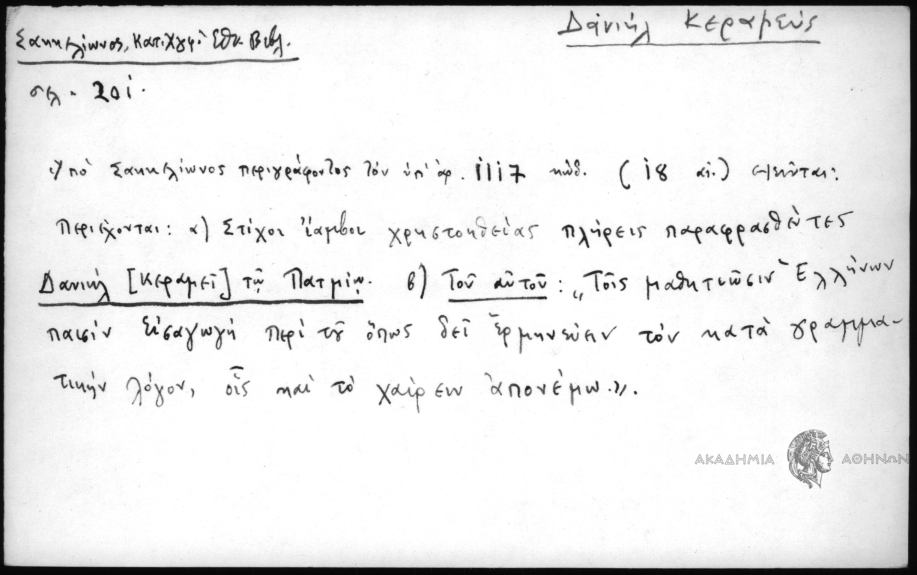 Δανιήλ Κεραμεύς
Σακκελίωνος, Κατάλογ. Εθν. Βιβλ.
σελ. 201.
Ὑπὸ Σακκελίωνος περιγράφοντος τὸν ὑπ' ἀρ. 1117 κώδ. (18 αἰ.)
Περιέχονται: α) Στίχοι ἴαμβοι χρηστοηθείας πλήρεις παραφρασθέντες
Δανιήλ [Κεραμεῖ] τῷ Πατμίῳ. β) Τοῦ αὐτοῦ: „Τοῖς μαθητιῶσιν Ἑλλήνων
παισὶν Εἰσαγωγὴ περὶ τοῦ ὅπως δεῖ ἑρμηνεύειν τὸν κατὰ γραμμα-
τικὴν λόγον, οἷς καὶ τὸ χαίρειν ἀπονέμω.».
ΑΚΑΔΗΜΙΑ ΑΘΗΝΩΝ